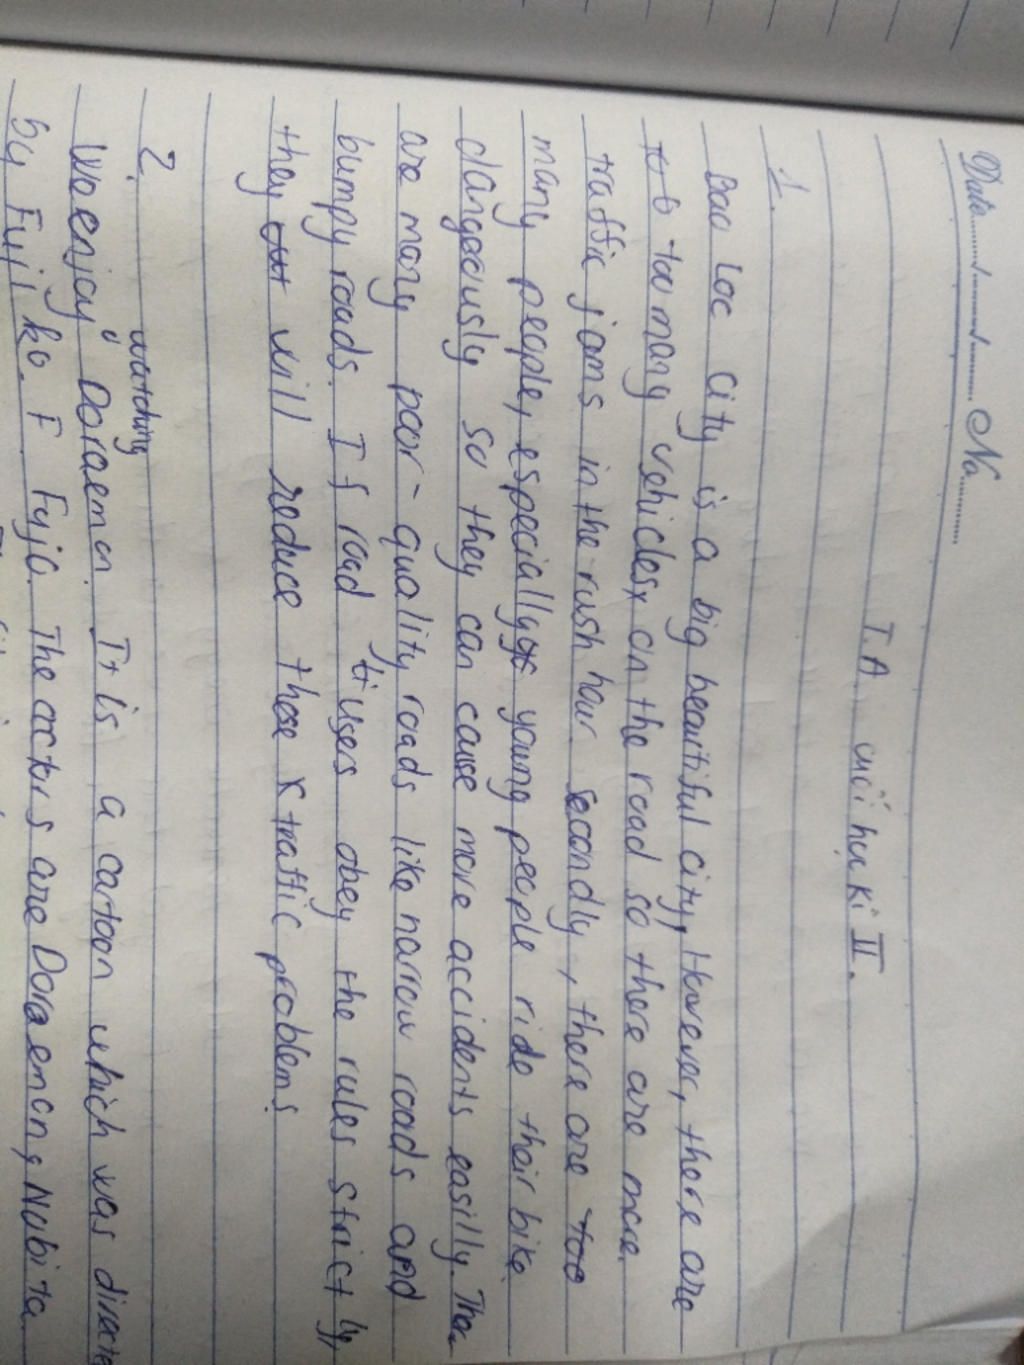 Date No
T.A cuối học kì II.
1.
Bao Loc city is a big beautiful city, However, there are
too many vehicles on the road so there are more
traffic jams in the rush hour secondly, there are
many people, especially young people ride their bike
dangeously so they can cause more accidents easilly. There
are many poor-quality roads like narrow roads and
bumpy roads. If road users obey the rules strictly,
they will reduce these traffic problems
2.
We enjoy watching Doraemon. It is a cartoon which was directe
by Fujiko. F Fujio. The actors are Doraemon, Nobita